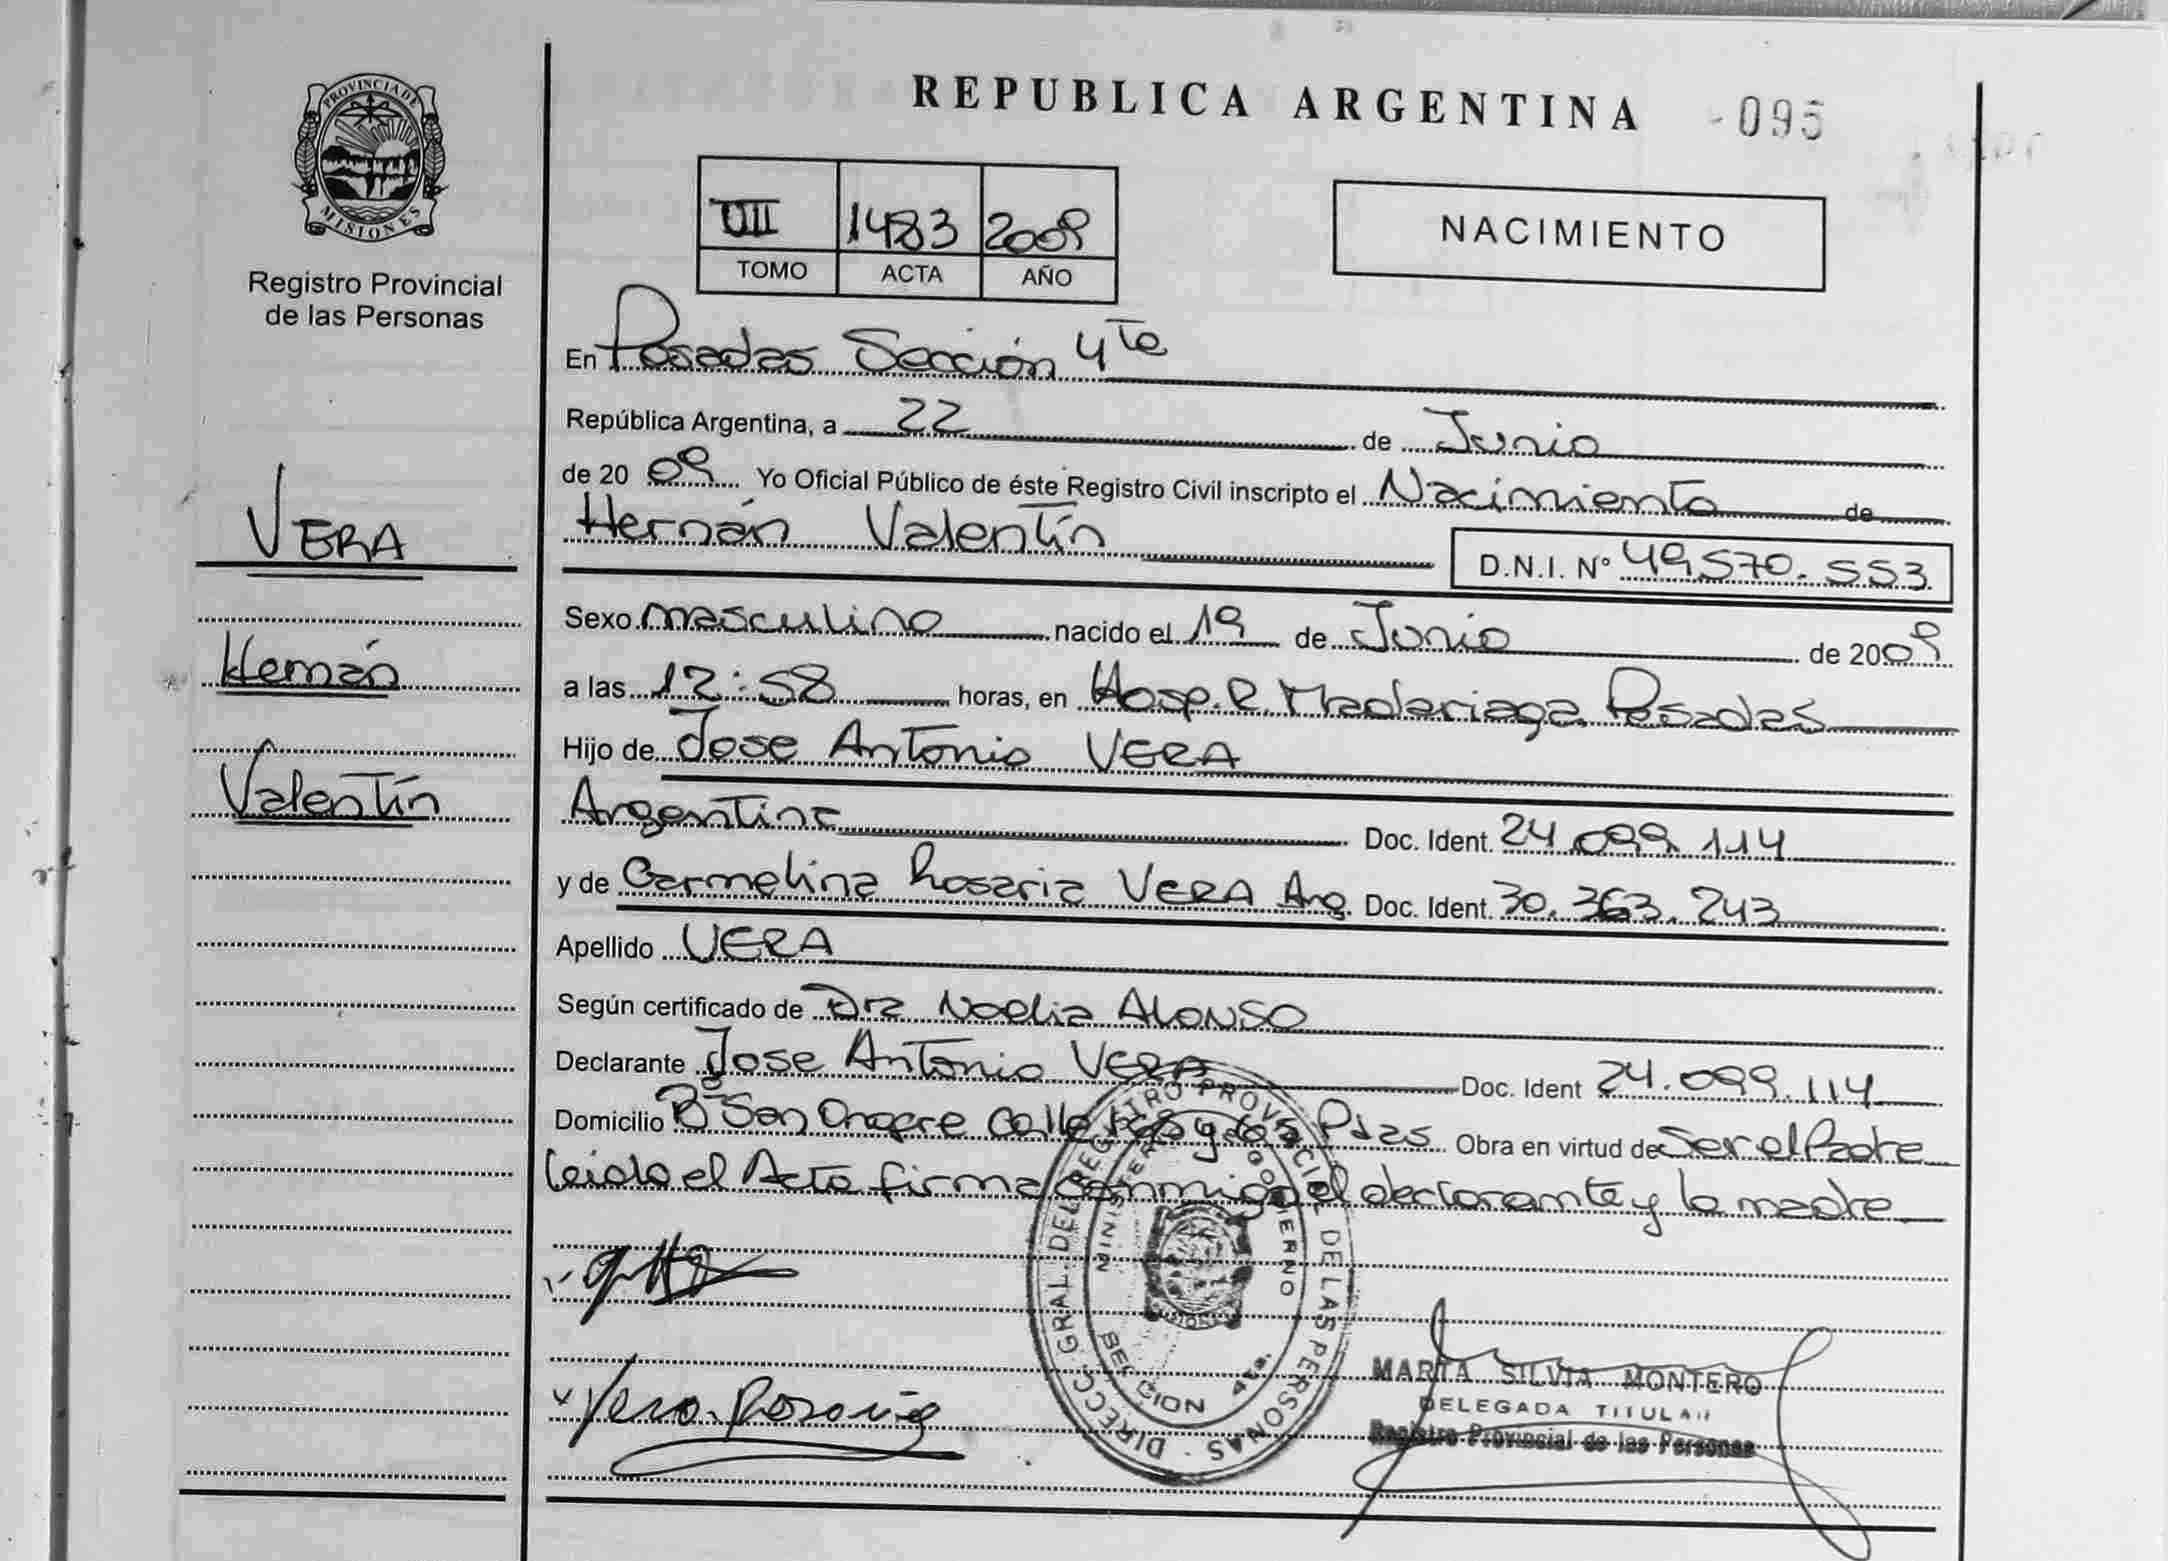 REPUBLICA ARGENTINA
095
PROVINCIA DE
MISIONES
Registro Provincial
de las Personas
VERA
Hernán
Valentín
1483 2009
TOMO ACTA AÑO
NACIMIENTO
En Posadas Sección 4ta
República Argentina, a 22 de Junio
de 20 09 Yo Oficial Público de éste Registro Civil inscripto el Nacimiento de
Hernán Valentín
D.N.I. N° 49.570.553
Sexo masculino nacido el 19 de Junio de 2009
a las 12:58 horas, en Hosp. R. Madariaga Posadas
Hijo de Jose Antonio VERA
Argentina Doc. Ident. 24.099.114
y de Carmelina Rosaria VERA Arg. Doc. Ident. 30.363.243
Apellido VERA
Según certificado de Dra Noelia ALONSO
Declarante Jose Antonio VERA Doc. Ident 24.099.114
Domicilio B° San Onofre calle y Pdas Obra en virtud de Ser el Padre
leido el Acta firma conmigo el declarante y la madre
DIRECC. GRAL. DEL REGISTRO PROVINCIAL DE LAS PERSONAS
GOBIERNO
SECCION 4ta.
Vera. Rosaria
MARTA SILVIA MONTERO
DELEGADA TITULAR
Registro Provincial de las Personas